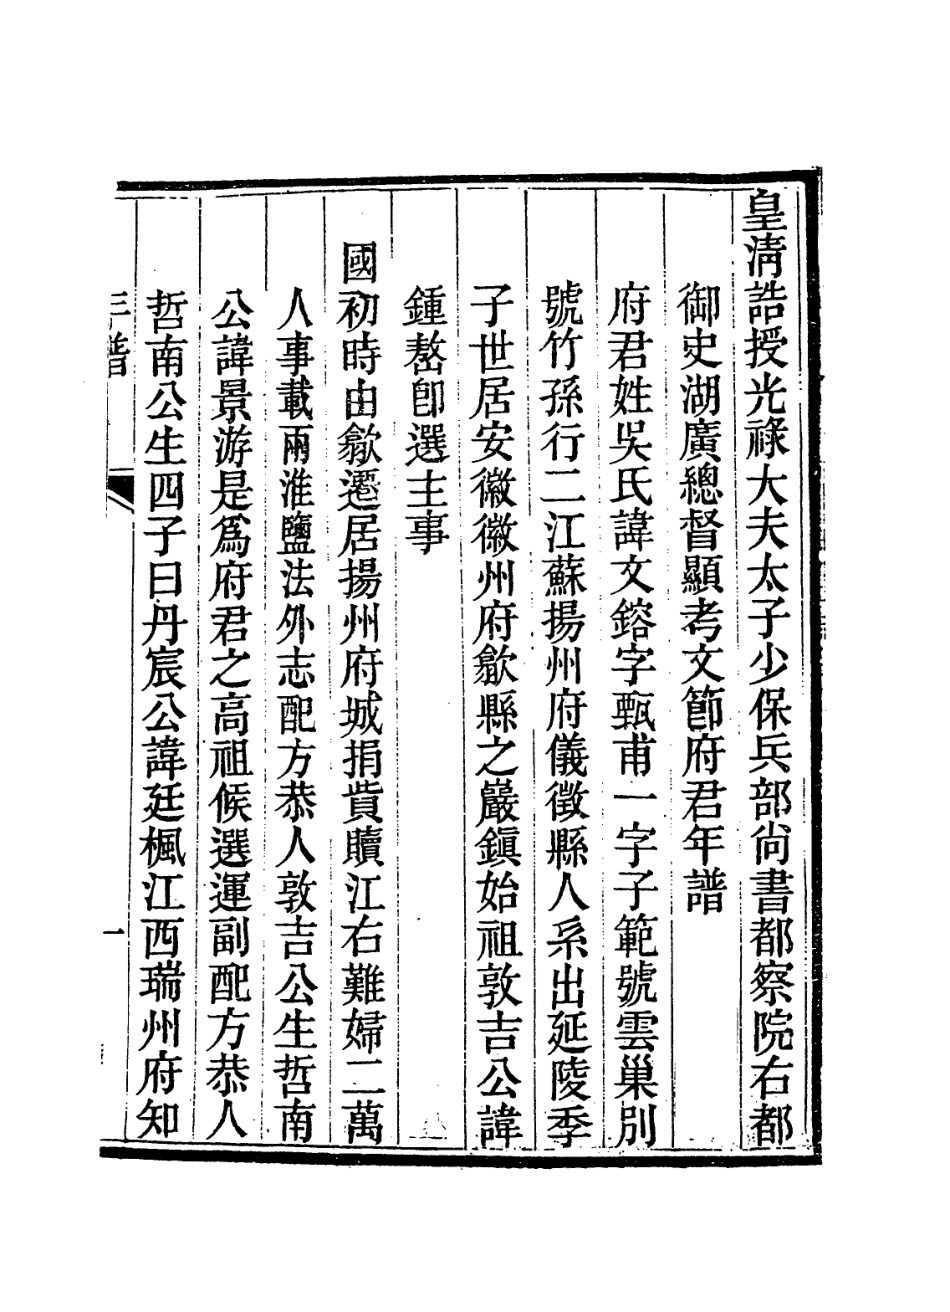 皇淸誥授光祿大夫太子少保兵部尙書都察院右都
御史湖廣總督顯考文節府君年譜
府君姓吳氏諱文鎔字甄甫一字子範號雲巢別
號竹孫行二江蘇揚州府儀徵縣人系出延陵季
子世居安徽徽州府歙縣之巖鎭始祖敦吉公諱
鍾嶅卽選主事
國初時由歙遷居揚州府城捐貲贖江右難婦二萬
人事載兩淮鹽法外志配方恭人敦吉公生哲南
公諱景游是爲府君之高祖候選運副配方恭人
哲南公生四子曰丹宸公諱廷楓江西瑞州府知
年譜
一